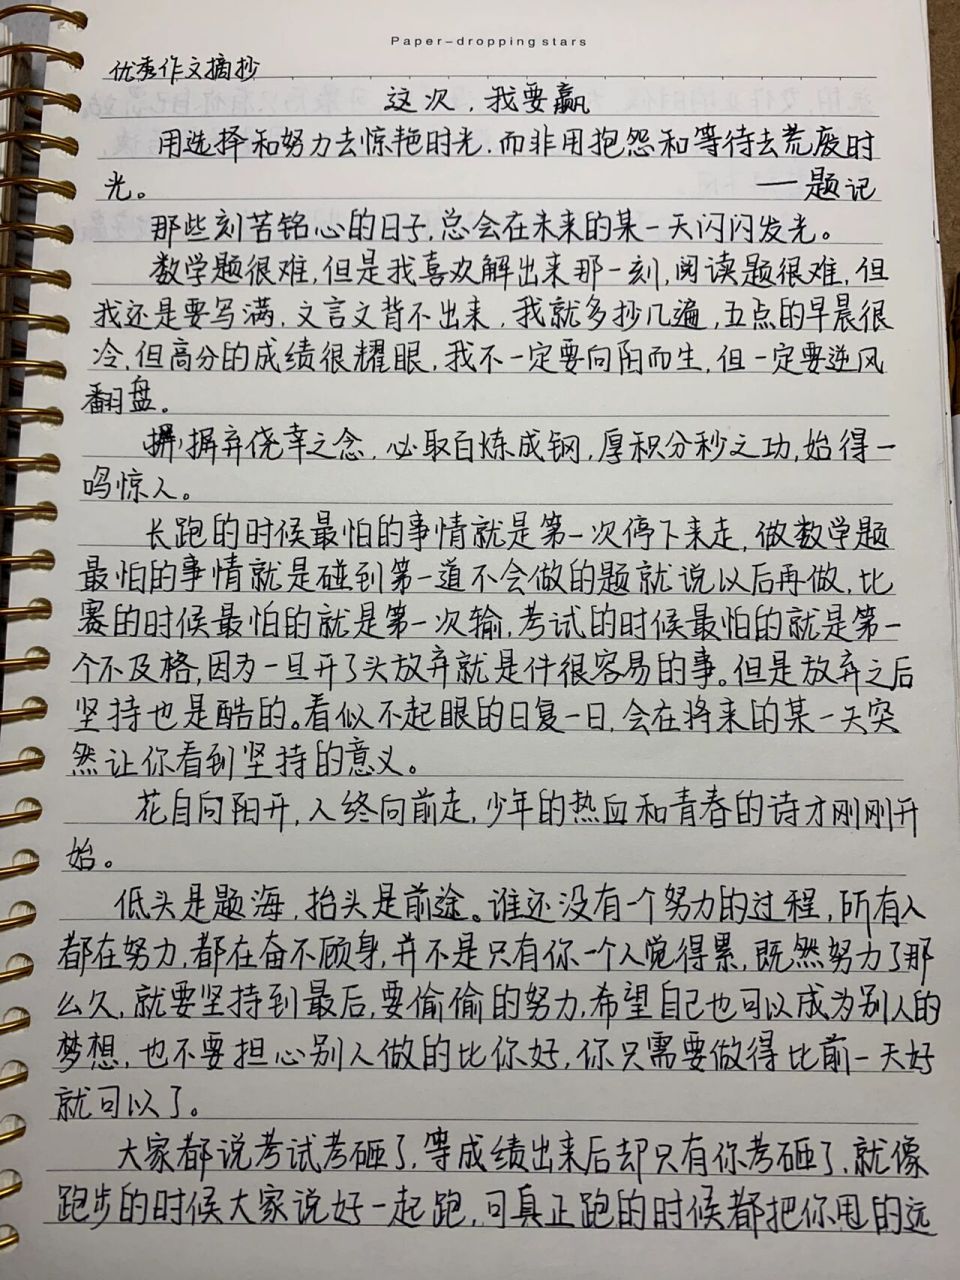 Paper-dropping stars
优秀作文摘抄
这次，我要赢
用选择和努力去惊艳时光，而非用抱怨和等待去荒废时
光。 ——题记
那些刻苦铭心的日子，总会在未来的某一天闪闪发光。
数学题很难，但是我喜欢解出来那一刻，阅读题很难，但
我还是要写满，文言文背不出来，我就多抄几遍，五点的早晨很
冷，但高分的成绩很耀眼，我不一定要向阳而生，但一定要逆风
翻盘。
摒弃侥幸之念，必取百炼成钢，厚积分秒之功，始得一
鸣惊人。
长跑的时候最怕的事情就是第一次停下来走，做数学题
最怕的事情就是碰到第一道不会做的题就说以后再做，比
赛的时候最怕的就是第一次输，考试的时候最怕的就是第一
个不及格，因为一旦开了头放弃就是件很容易的事。但是放弃之后
坚持也是酷的。看似不起眼的日复一日，会在将来的某一天突
然让你看到坚持的意义。
花自向阳开，人终向前走，少年的热血和青春的诗才刚刚开
始。
低头是题海，抬头是前途。谁还没有一个努力的过程，所有人
都在努力，都在奋不顾身，并不是只有你一个人觉得累，既然努力了那
么久，就要坚持到最后，要偷偷的努力，希望自己也可以成为别人的
梦想，也不要担心别人做的比你好，你只需要做得比前一天好
就可以了。
大家都说考试考砸了，等成绩出来后却只有你考砸了，就像
跑步的时候大家说好一起跑，可真正跑的时候都把你甩的远